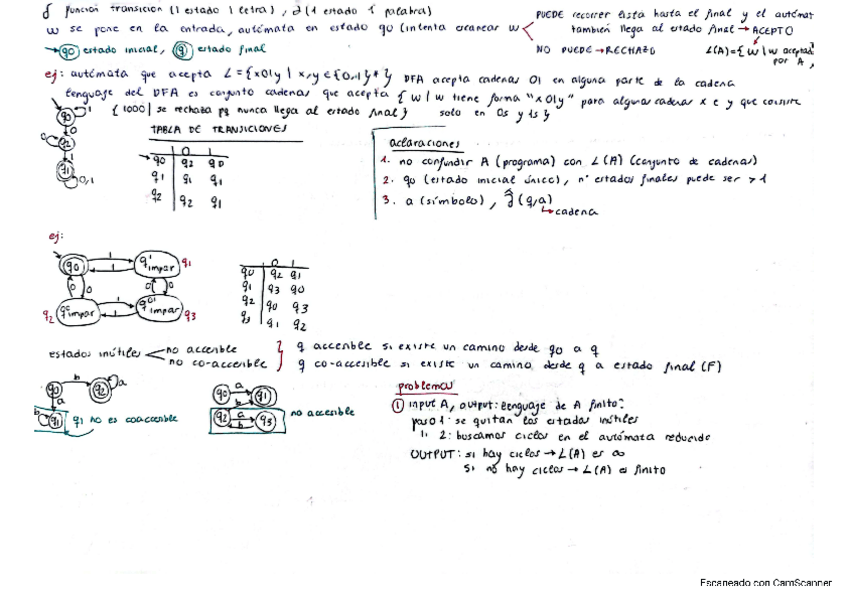 δ función transición (1 estado 1 letra), ∂̂ (1 estado 1 palabra)
w se pone en la entrada, autómata en estado q0 (intenta escanear w
PUEDE recorrer lista hasta el final y el autómat
también llega al estado final → ACEPTO
NO PUEDE → RECHAZO L(A)={w | w aceptada por A}
→ q0 estado inicial, q estado final
ej: autómata que acepta L = {x01y | x,y ∈ {0,1}*} DFA acepta cadenas 01 en alguna parte de la cadena
lenguaje del DFA es conjunto cadenas que acepta {w | w tiene forma "x01y" para algunas cadenas x e y que consiste
{1000 | se rechaza pq nunca llega al estado final} solo en 0s y 1s}
q0 1
0
0 q2
1
q1 0,1
TABLA DE TRANSICIONES
0 1
→ q0 q2 q0
q1 q1 q1
q2 q2 q1
aclaraciones
1. no confundir A (programa) con L(A) (conjunto de cadenas)
2. q0 (estado inicial único), nº estados finales puede ser > 1
3. a (símbolo), ∂̂(q,a)
→ cadena
ej:
q0 1 1 q1 impar q1
0 0 0 0
q2 q0 impar 1 1 q01 impar q3
0 1
q0 q2 q1
q1 q3 q0
q2 q0 q3
q3 q1 q2
estados inútiles no accesible
no co-accesible
q accesible si existe un camino desde q0 a q
q co-accesible si existe un camino desde q a estado final (F)
q0 b q2 a
a
b q1 q1 no es coaccesible
q0 a b q1
q2 a b q3 no accesible
problemas
1 input A, output: lenguaje de A finito?
paso 1: se quitan los estados inútiles
2: buscamos ciclos en el autómata reducido
OUTPUT: si hay ciclos → L(A) es ∞
si no hay ciclos → L(A) es finito
Escaneado con CamScanner